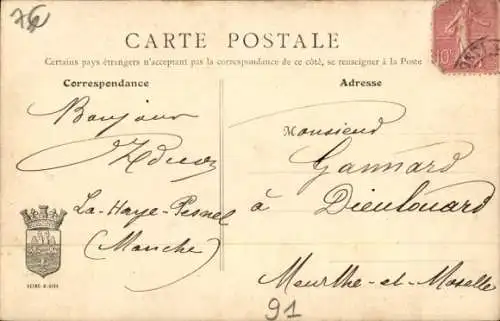 CARTE POSTALE
Certains pays étrangers n'acceptant pas la correspondance de ce côté, se renseigner à la Poste
Correspondance
Adresse
Bonjour
La-Haye-Pesnel
(Manche)
Monsieur
Gannard
à Dieulouard
Meurthe-et-Moselle
10
91